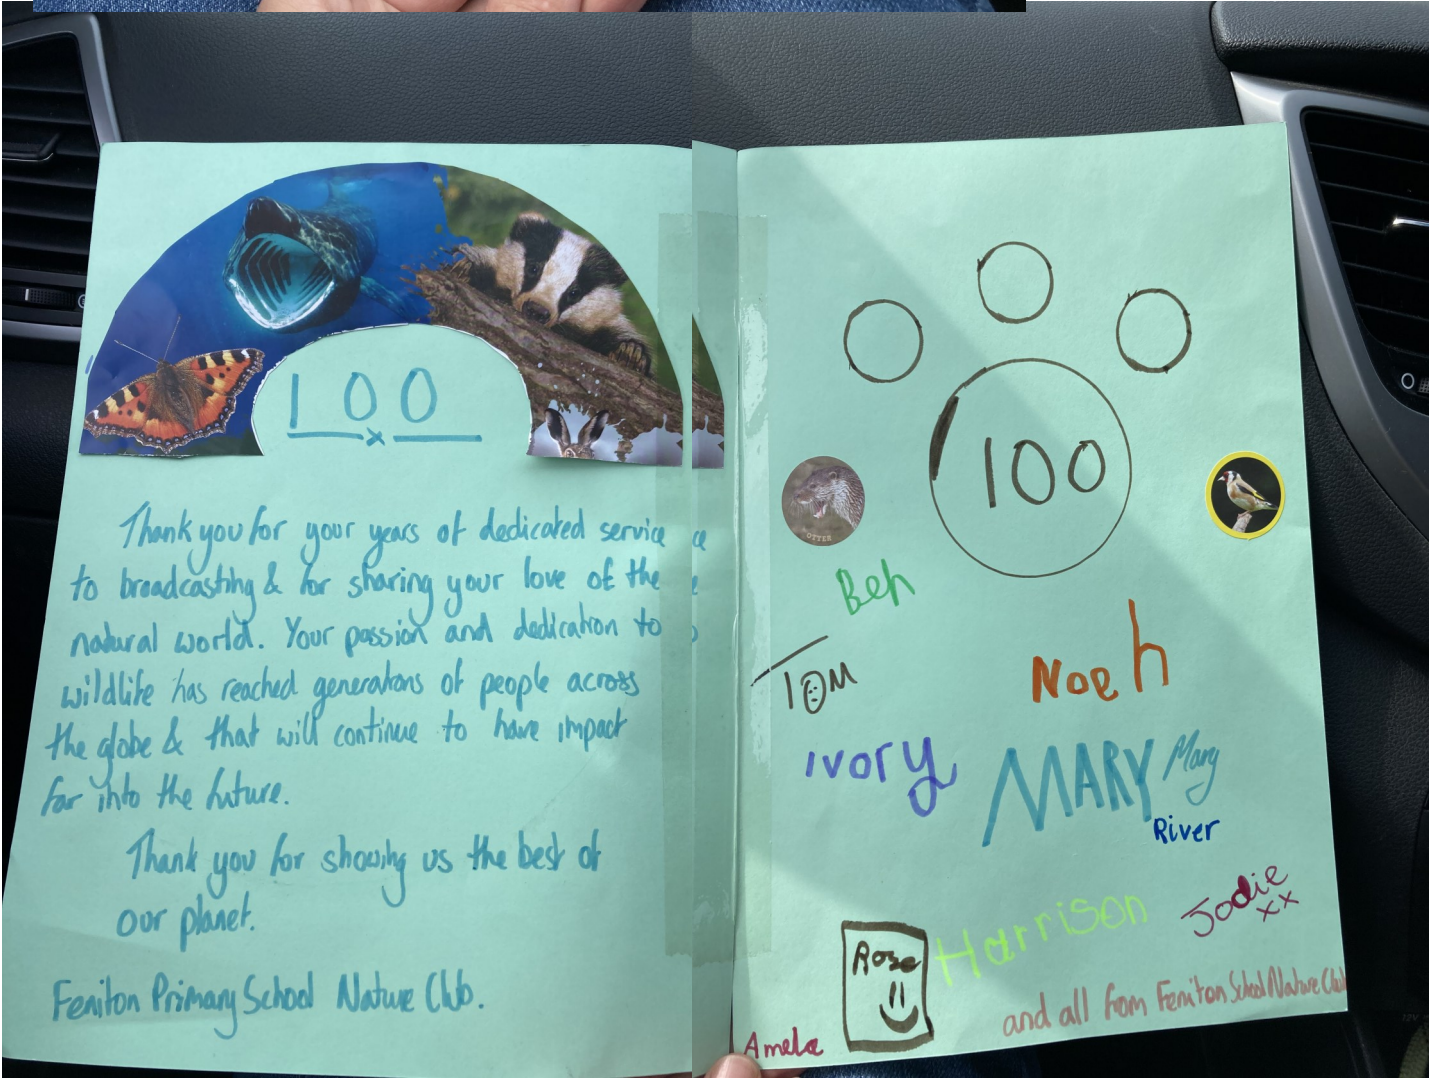 100
Thank you for your years of dedicated service
to broadcasting & for sharing your love of the
natural world. Your passion and dedication to
wildlife has reached generations of people across
the globe & that will continue to have impact
far into the future.
Thank you for showing us the best of
our planet.
Feniton Primary School Nature Club.
100
OTTER
Beh
TOM
Noeh
Ivory
MARY Mary
River
Harrison
Jodie
xx
Rose
Amela
and all from Feniton School Nature Club